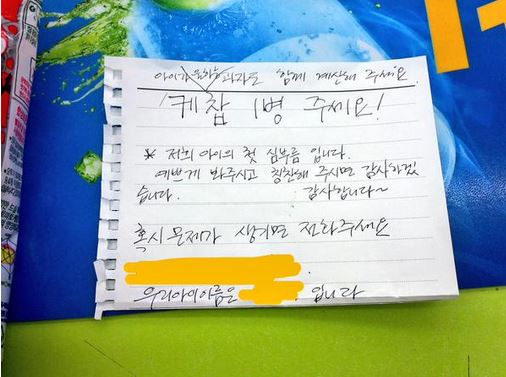 아이가 원하는 과자도 함께 계산해 주세요.
케찹 1병 주세요!
* 저희 아이의 첫 심부름 입니다.
예쁘게 봐주시고 칭찬해 주시면 감사하겠
습니다. 감사합니다~
혹시 문제가 생기면 전화주세요
우리아이이름은 입니다